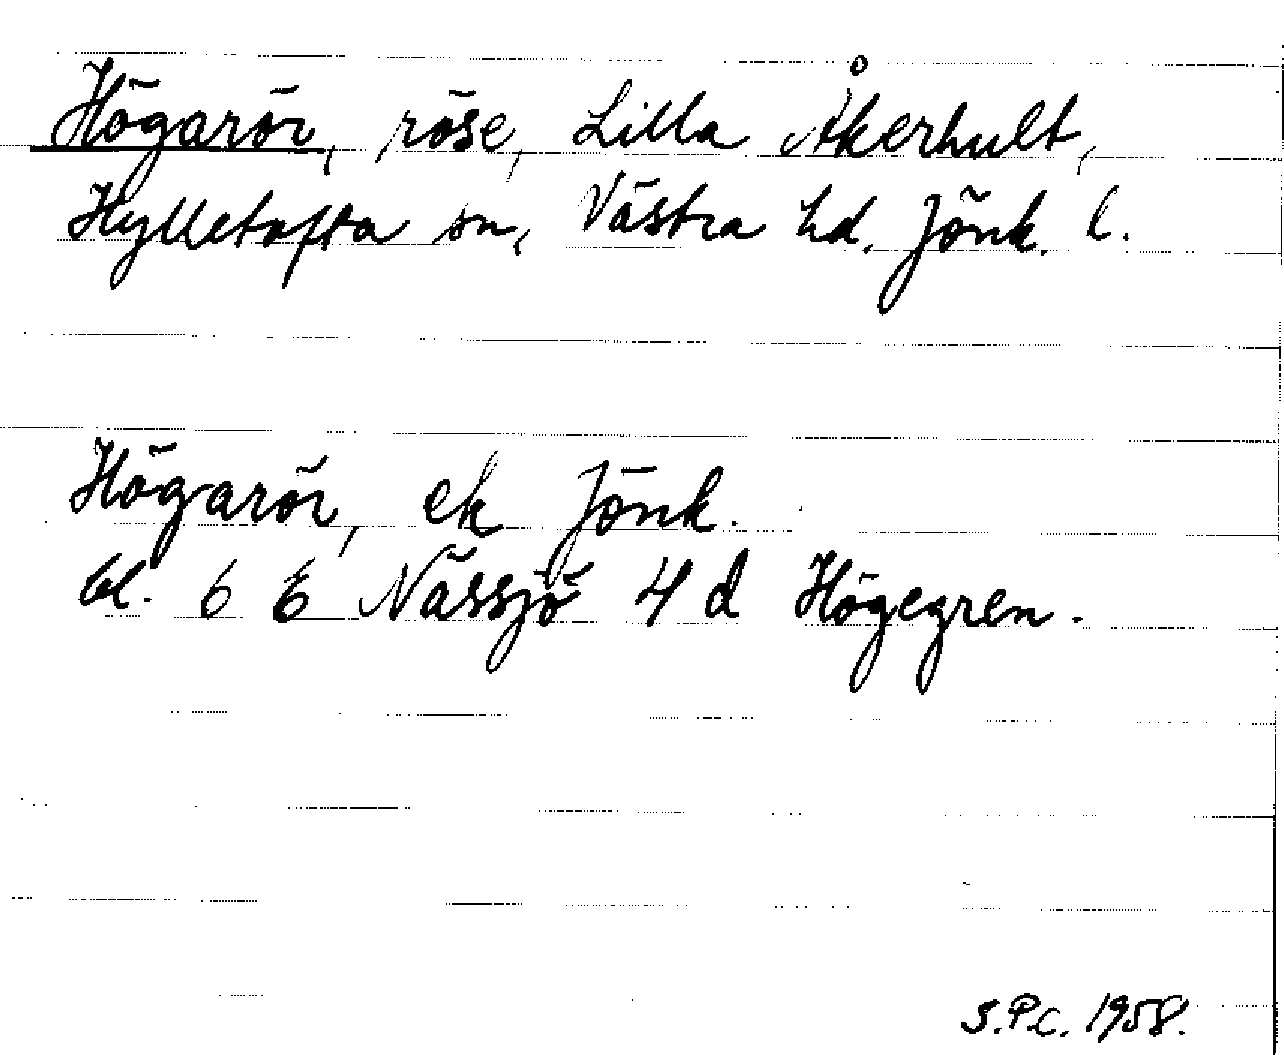 Högarör, röse, Lilla Åkerhult,
Hylletofta sn, Västra hd. Jönk. l.
Högarör, ek Jönk.
bl. 6 E Nässjö 4 d Högegren.
S.P.C. 1958.